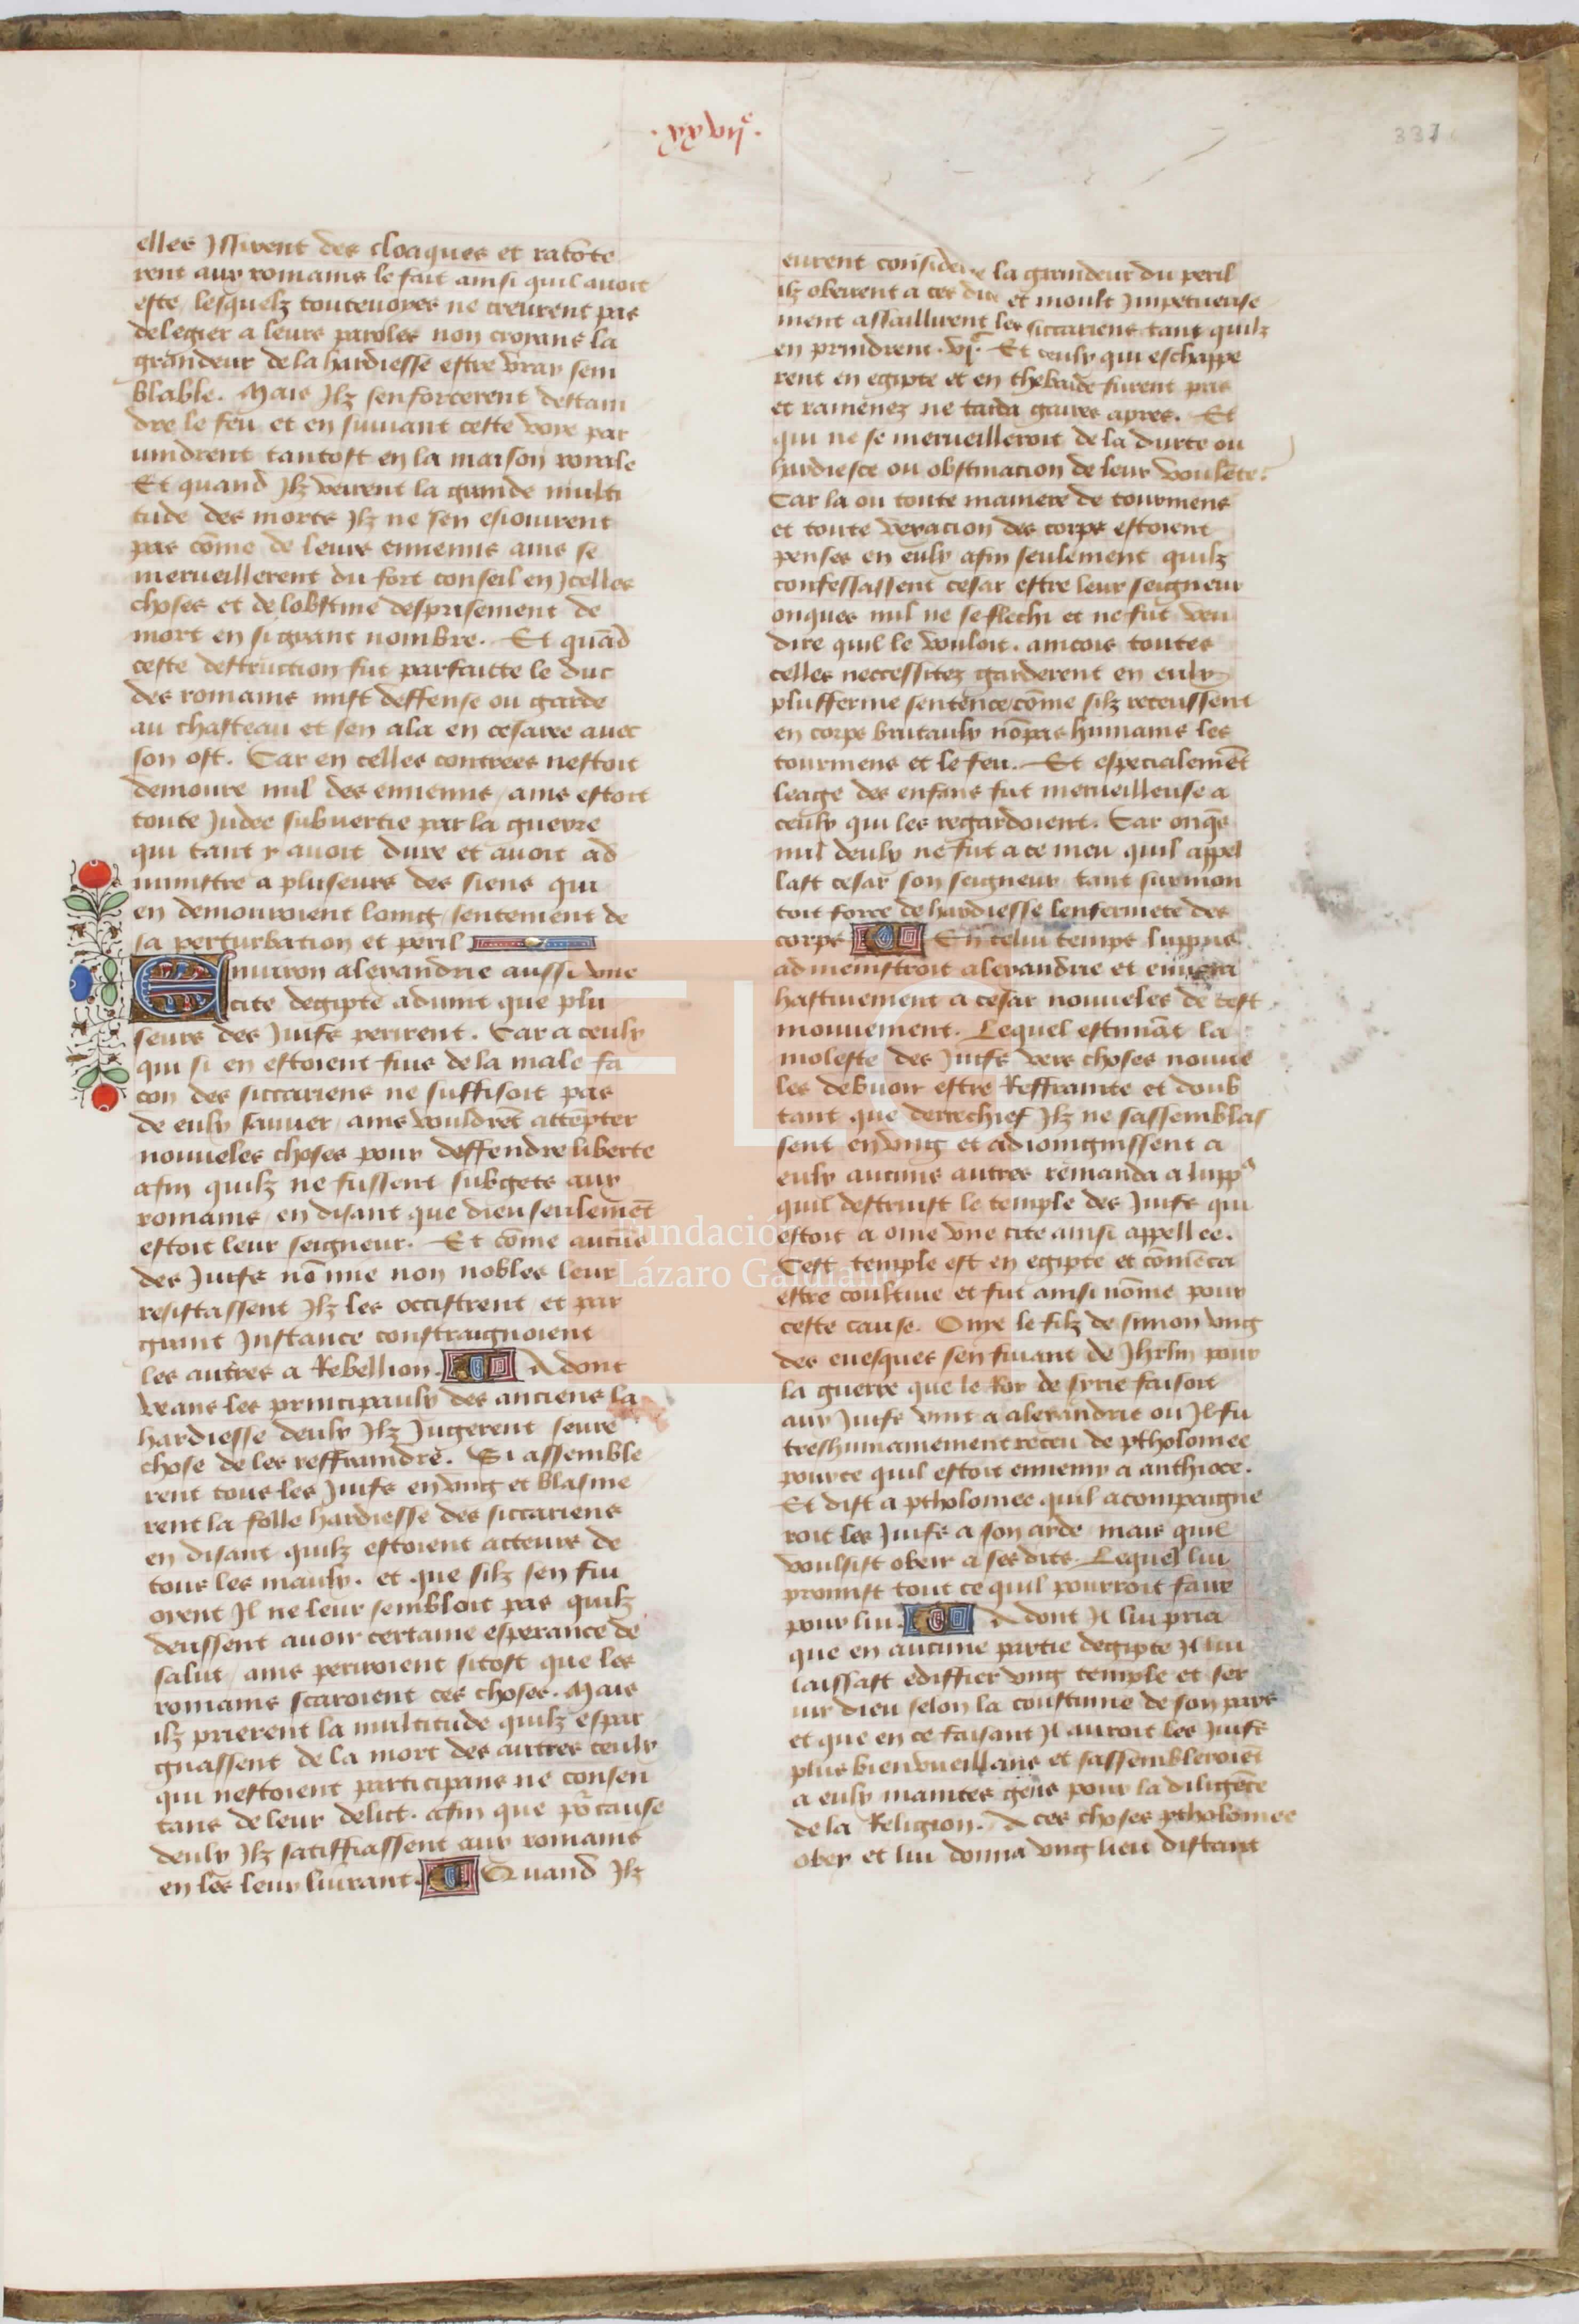 .xxvij.e
337
elles Jssirent des cloaques et racōte
rent aux romains le fait ainsi quil auoit
este / lesquelz touteuoyes ne creurent pas
de legier a leurs paroles non croyans la
grandeur de la hardiesse estre vray sem
blable. Mais Jlz senforcerent destain
dre le feu et en suiuant ceste voye par
uindrent tantost en la maison royale
Et quand Jlz veirent la grande multi
tude des mors Jlz ne sen esiouirent
pas cōme de leurs ennemis ains se
merueillerent du fort conseil en Jcelles
choses et de lobstine desprisement de
mort en si grant nombre. Et quād
ceste destruction fut parfaitte le duc
des romains mist deffense ou garde
au chasteau et sen ala en cesaree auec
son ost. Car en celles contrees nestoit
demoure nul des ennemis / ains estoit
toute Judee subuertie par la guerre
qui tant y auoit dure et auoit ad
ministre a pluseurs des siens qui
en demouroient loing / sentement de
sa perturbation et peril
Enuiron alexandrie aussi vne
cite degipte aduint que plu
seurs des Juifs perirent. Car a ceulx
qui si en estoient fuis de la male fa
con des siccariens ne suffisoit pas
de eulx sauuer / ains vouldrēt attēpter
nouueles choses pour deffendre liberte
afin quilz ne fussent subgets aux
romains / en disant que dieu seulemēt
estoit leur seigneur. Et cōme aucūs
des Juifs nō mie non nobles leur
resistassent Jlz les occistrent et par
grant Jnstance constraignoient
les autres a Rebellion. Adont
veans les principaulx des anciens la
hardiesse deulx Jlz Jugerent seure
chose de les reffraindre. Si assemble
rent tous les Juifs en vng et blasme
rent la folle hardiesse des siccariens
en disant quilz estoient acteurs de
tous les maulx. et que silz sen fui
oyent Jl ne leur sembloit pas quilz
deussent auoir certaine esperance de
salut / ains periroient sitost que les
romains scaroient ces choses. Mais
ilz prierent la multitude quilz espar
gnassent de la mort des autres ceulx
qui nestoient participans ne consen
tans de leur delict. afin que po͛ cause
deulx Jlz satiffiassent aux romains
en les leur liurant. Quand Jlz
eurent considere la grandeur du peril
ilz obeirent a ces dis et moult Jmpetueuse
ment assaillirent les siccariens tant quilz
en prindrent .vjc. Et ceulx qui eschappe
rent en egipte et en thebaide furent pris
et ramenez ne tarda gaires apres. Et
qui ne se merueilleroit de la durte ou
hardiesce ou obstinacion de leur voulēte?
Car la ou toute maniere de tourmens
et toute vexacion des corps estoient
penses en eulx afin seulement quilz
confessassent cesar estre leur seigneur
onques nul ne se flechi et ne fut veu
dire quil le vouloit. aincois toutes
celles neccessitez garderent en eulx
plusferme sentence / cōme silz receussent
en corps brutaulx nōpas humains les
tourmens et le feu. Et especialemēt
leage des enfans fut merueilleuse a
ceulx qui les regardoient. Car onq̄s
nul deulx ne fut a ce meu quil appel
last cesar son seigneur tant surmon
toit force de hardiesse lenfermete des
corps En celui temps luppus
admeinistroit alexandrie et enuoia
hastiuement a cesar nouueles de cest
mouuement. Lequel estimāt la
moleste des Juifs vers choses nouue
les debuoir estre Reffrainte et doub
tant que derrechief Jlz ne sassemblas
sent en vng et adioingnissent a
eulx aucuns autres remanda a lupp9
quil destruist le temple des Juifs qui
estoit a onie vne cite ainsi appellee.
Cest temple est en egipte et cōmēca
estre coultiue et fut ainsi nōme pour
ceste cause. Onye le filz de simon vng
des euesques sen fuiant de Jhrlm pour
la guerre que le Roy de syrie faisoit
aux Juifs vint a alexandrie ou Jl fu
treshumainement receu de ptholomee
pource quil estoit ennemy a anthioce.
Et dist a ptholomee quil acompaigne
roit les Juifs a son ayde / mais quil
voulsist obeir a ses dits. Lequel lui
promist tout ce quil pourroit faire
pour lui. Adont Jl lui pria
que en aucune partie degipte Jl lui
laissast ediffier vng temple et ser
uir dieu selon la coustume de son pais
et que en ce faisant Jl auroit les Juifs
plus bienvueillans et sassembleroiēt
a eulx maintes gens pour la diligēce
de la Religion. A ces choses ptholomee
obey et lui donna vng lieu distant
Fundación
Lázaro Galdiano